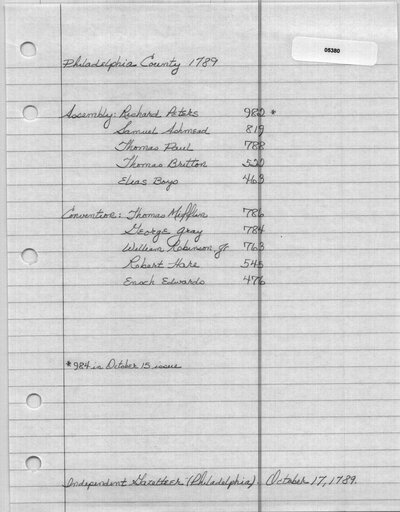 05380
Philadelphia County 1789
Assembly: Richard Peters 982 *
Samuel Ashmead 819
Thomas Paul 788
Thomas Britton 520
Elias Boys 463
Convention: Thomas Mifflin 786
George Gray 784
William Robinson, Jr 763
Robert Hare 545
Enoch Edwards 476
*984 in October 15 issue
Independent Gazetteer (Philadelphia). October 17, 1789.